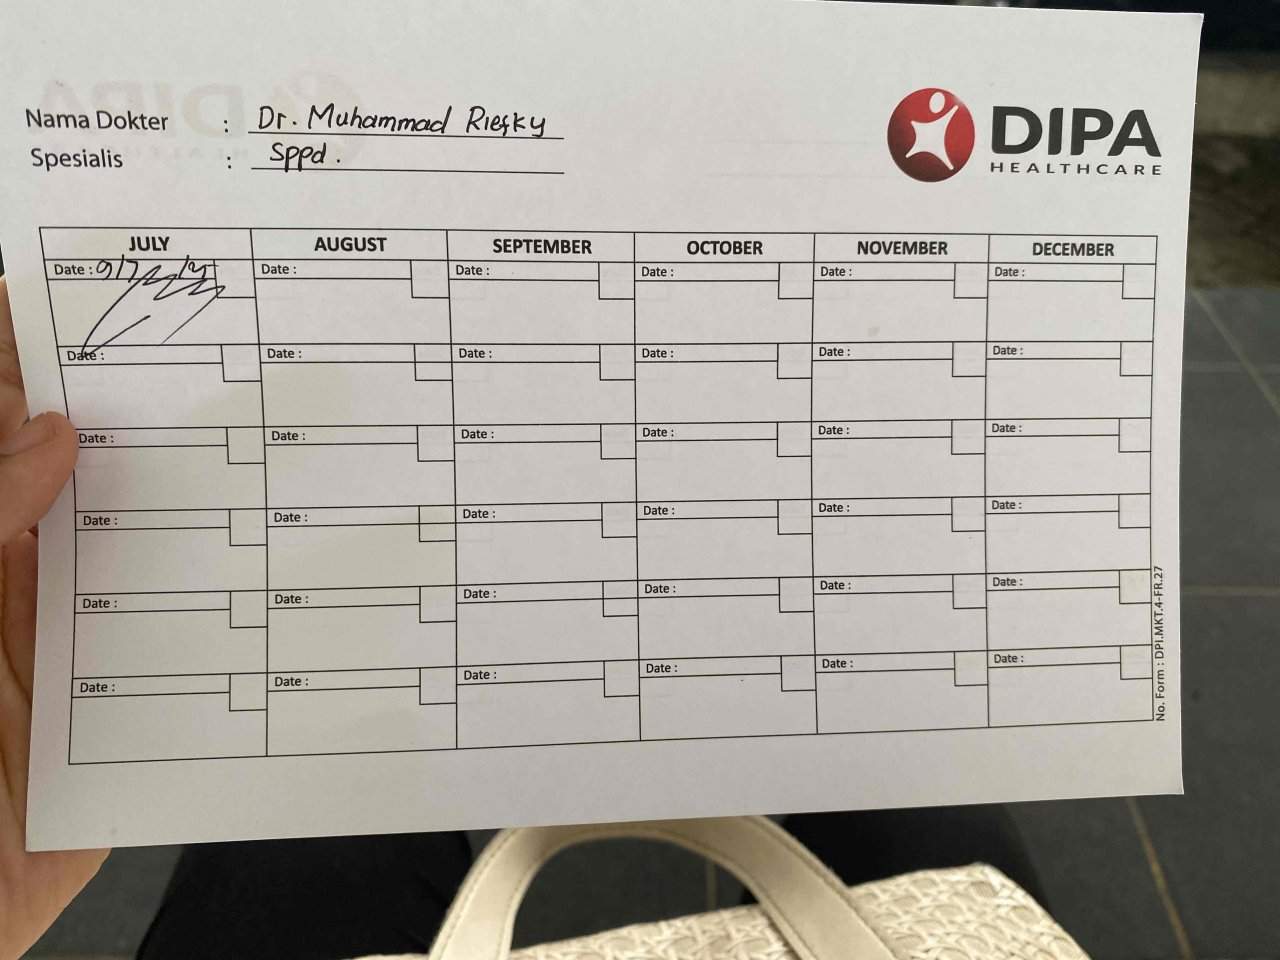 Nama Dokter : Dr. Muhammad Riesky
Spesialis : Sppd.
DIPA
HEALTHCARE
JULY AUGUST SEPTEMBER OCTOBER NOVEMBER DECEMBER
Date : 9/7 Date : Date : Date : Date : Date :
Date : Date : Date : Date : Date : Date :
Date : Date : Date : Date : Date : Date :
Date : Date : Date : Date : Date : Date :
Date : Date : Date : Date : Date : Date :
Date : Date : Date : Date : Date : Date :
No. Form : DPI.MKT.4-FR.27